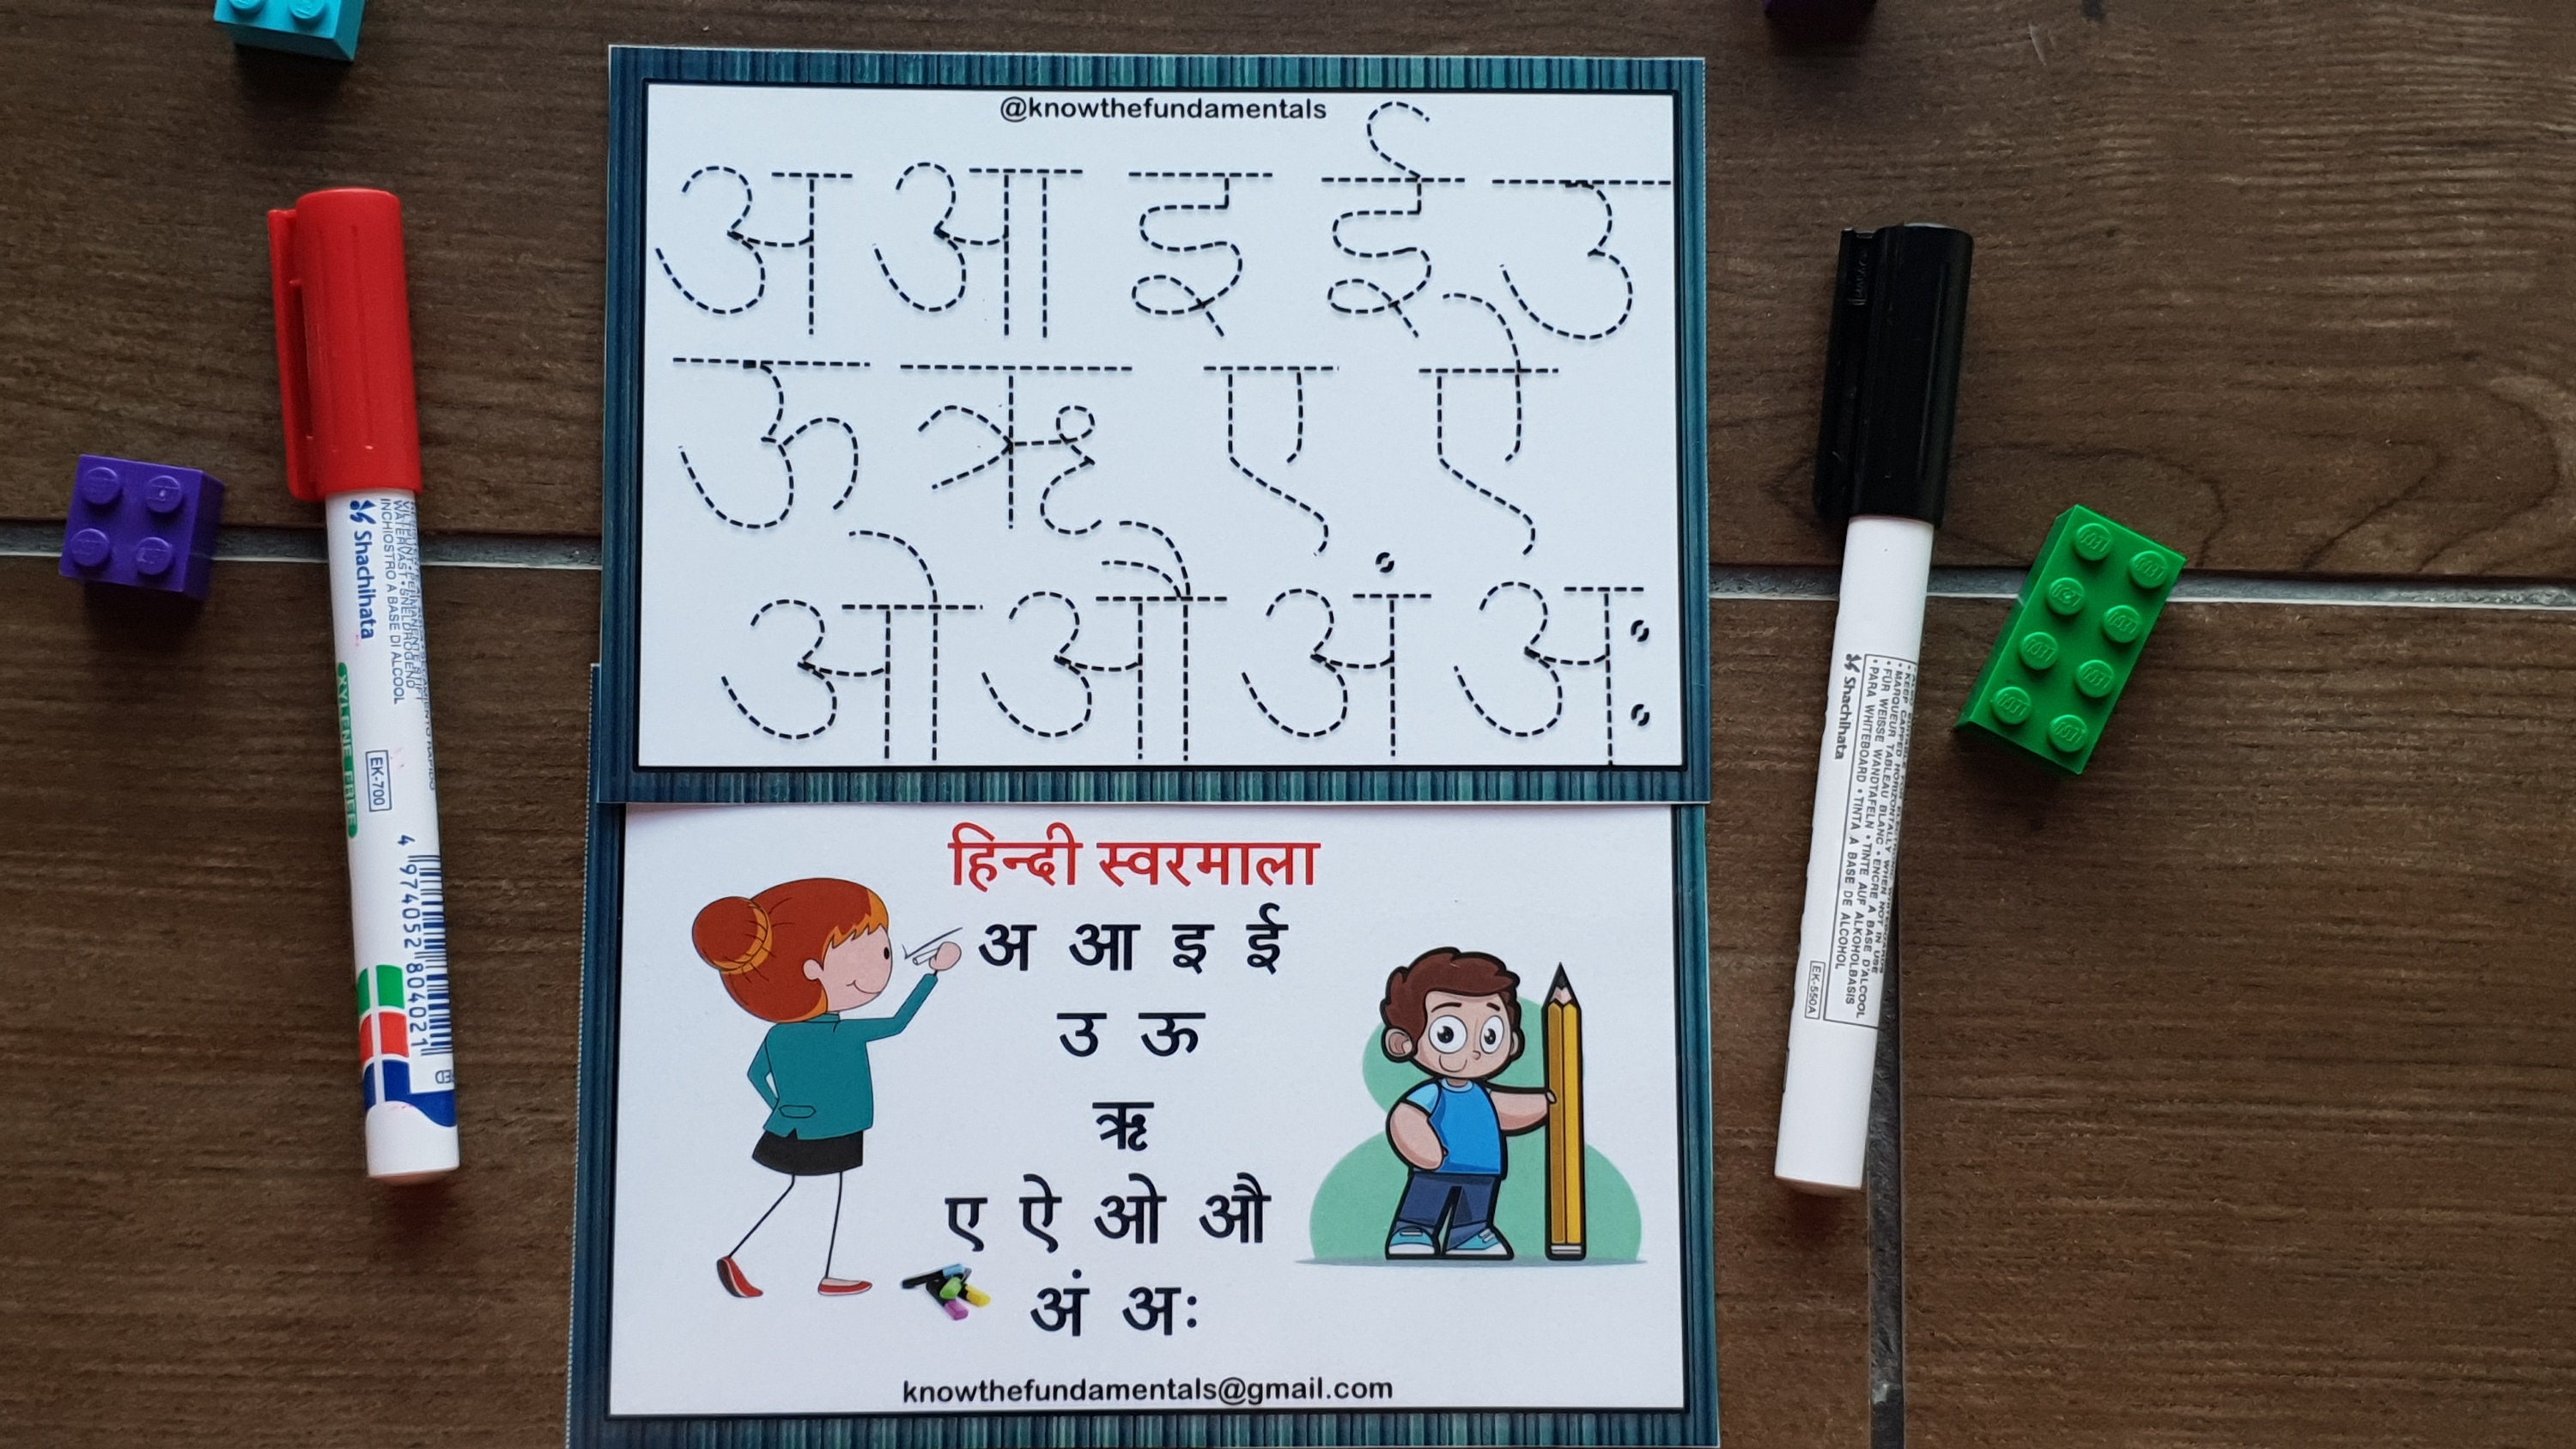 @knowthefundamentals
अ आ इ ई उ
ऊ ऋ ए ऐ
ओ औ अं अः
हिन्दी स्वरमाला
अ आ इ ई
उ ऊ
ऋ
ए ऐ ओ औ
अं अः
knowthefundamentals@gmail.com
Shachihata
INCHIOSTRO A BASE DI ALCOOL
XYLENE FREE
EK-700
4 974052 804021
Shachihata
• KEEP CAPPED HORIZONTALLY WHEN NOT IN USE
• MARQUEUR TABLEAU BLANC • ENCRE A BASE D'ALCOOL
• FÜR WEISSE WANDTAFELN • TINTE AUF ALKOHOLBASIS
• PARA WHITEBOARD • TINTA A BASE DE ALCOHOL
EK-550A